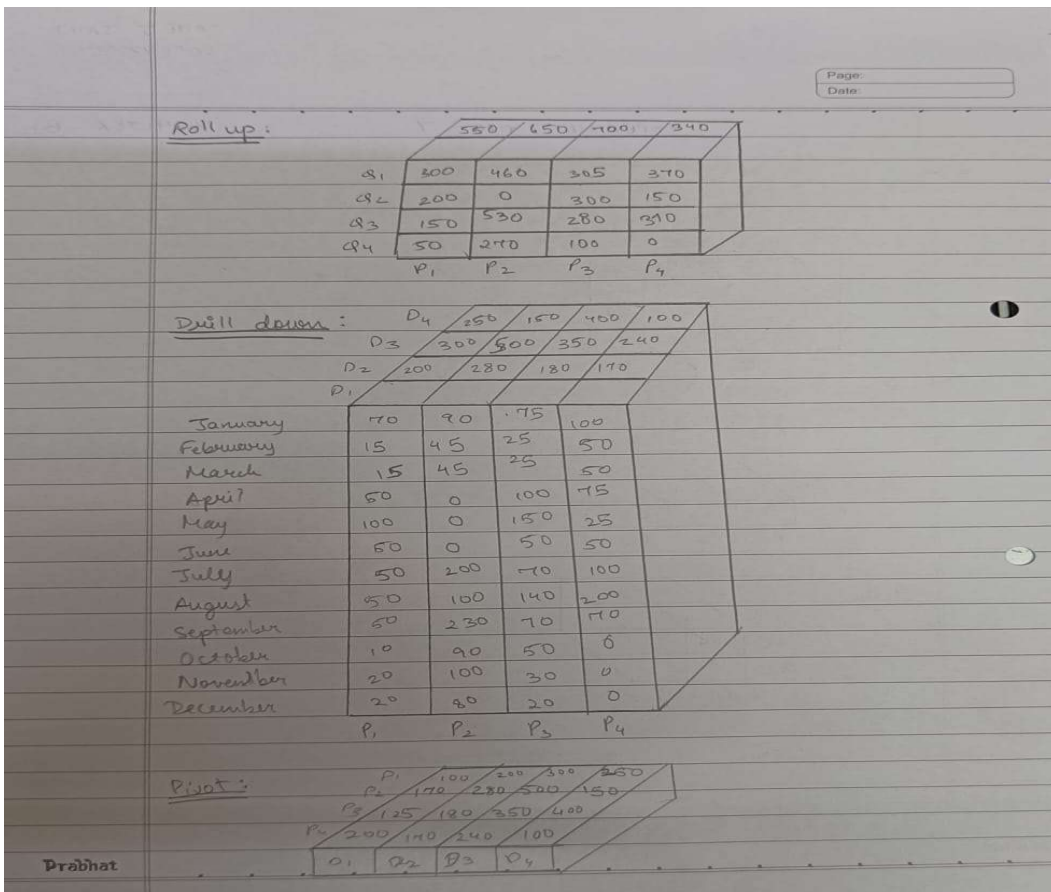 Page:
Date:
Roll up :
550 650 700 340
Q1 300 460 305 370
Q2 200 0 300 150
Q3 150 530 280 370
Q4 50 270 100 0
P1 P2 P3 P4
Drill down :
D4 250 150 400 100
D3 300 500 350 240
D2 200 280 180 170
D1
January 70 90 75 100
February 15 45 25 50
March 15 45 25 50
April 50 0 100 75
May 100 0 150 25
June 50 0 50 50
July 50 200 70 100
August 50 100 140 200
September 50 230 70 70
October 10 90 50 0
November 20 100 30 0
December 20 80 20 0
P1 P2 P3 P4
Pivot :
P1 100 200 300 250
P2 170 280 500 150
P3 125 180 350 400
P4 200 170 240 100
D1 D2 D3 D4
Prabhat